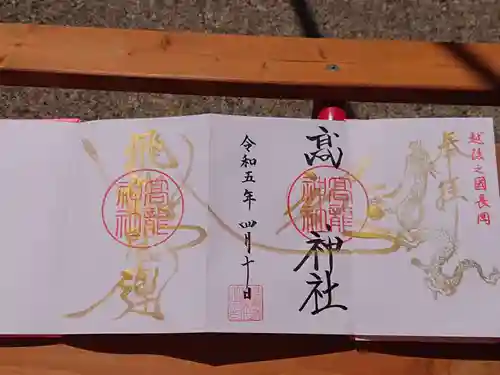 越後之國長岡
奉拝
髙神社
高龍
神社
令和五年 四月十日
飛
高龍
神社